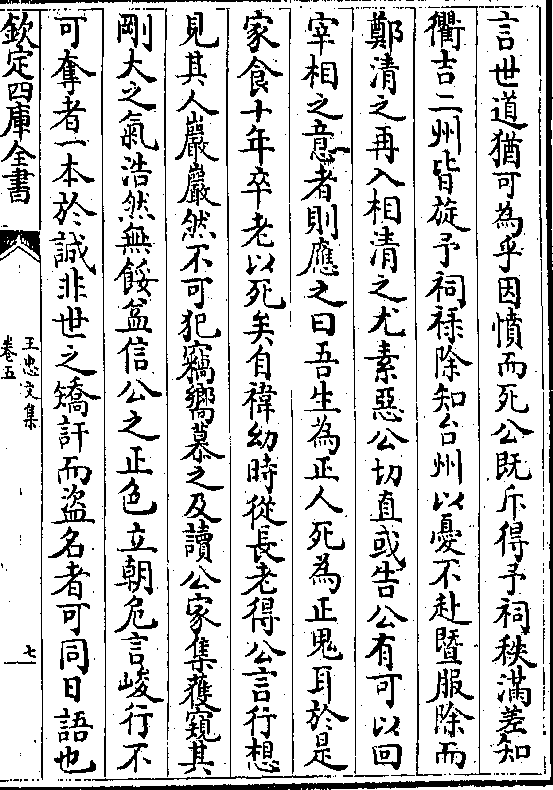 言世道猶可為乎因憤而死公既斥得予祠秩滿差知
衢吉二州皆旋予祠祿除知台州以憂不赴暨服除而
鄭清之再入相清之尤素惡公切直或告公有可以回
宰相之意者則應之曰吾生為正人死為正鬼耳於是
家食十年卒老以死矣自禕幼時從長老得公言行想
見其人巖巖然不可犯竊嚮慕之及讀公家集獲窺其
剛大之氣浩然無餒益信公之正色立朝危言峻行不
可奪者一本於誠非世之矯訐而盜名者可同日語也
欽定四庫全書
王忠文集
卷五
七